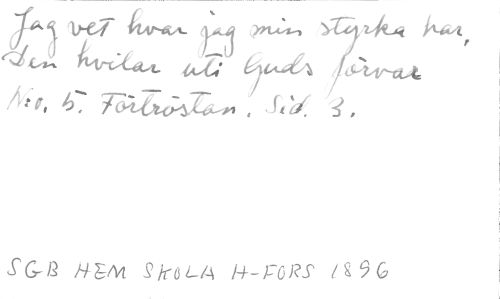 Jag vet hvar jag min styrka har,
Den hvilar uti Guds förvar
N:o. 5. Förtröstan. Sid. 3.
SGB HEM SKOLA H-FORS 1896